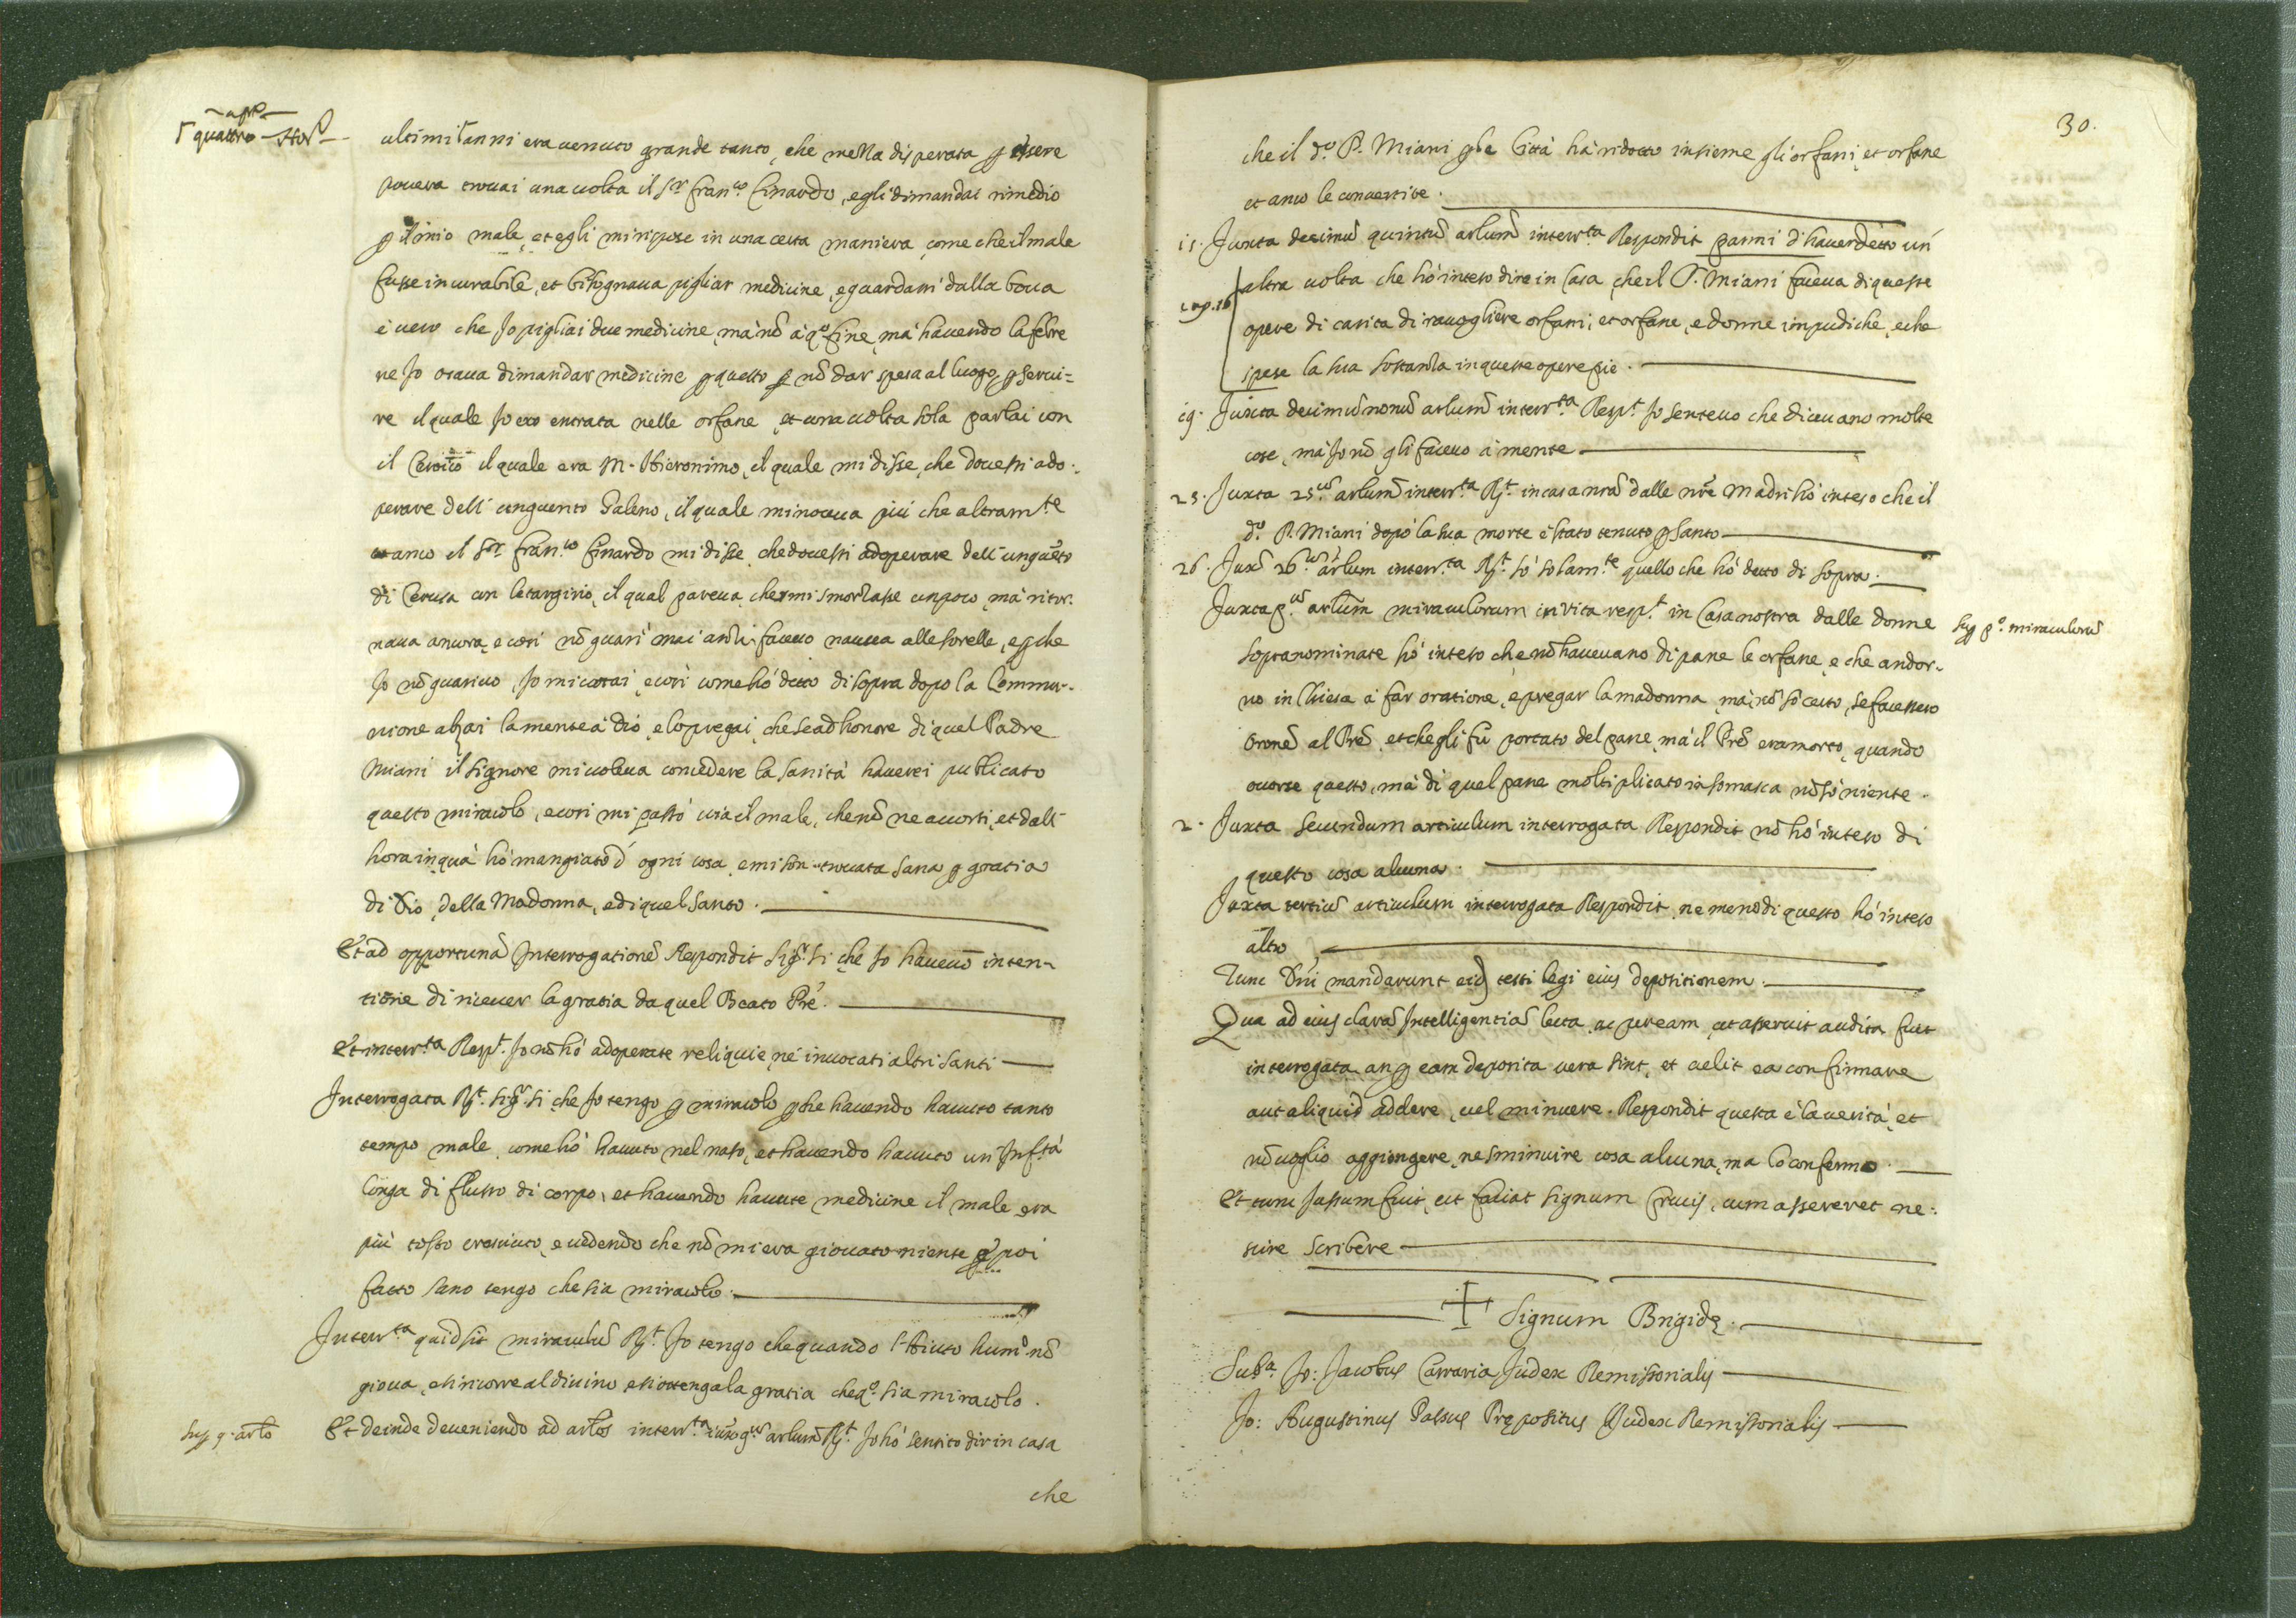 quattro
ultimi anni era venuto grande tanto, che mezza disperata p essere
povera trovai una volta il Sr Franco Cinardo, e gli dimandai rimedio
p il mio male, et egli mi rispose in una certa maniera, come che il male
fusse incurabile, et bisognava pigliar medicine, e guardarmi dalla boca
è vero che Jo pigliai due medicine, mà nõ à qo fine, mà havendo la febre
ne Jo osava dimandar medicine p questo p nõ dar spesa al luogo, p servi=
re il quale Jo ero entrata nelle orfane, et una volta sola parlai con
il il quale era M. Hieronimo, il quale mi disse, che dovessi ado-
perare dell' unguento Galeno, il quale mi noceva più che altramte
anco il Sor Franco Cinardo mi disse, che dovessi adoperare dell' unguẽto
di Cerusa con letargirio, il qual pareva, che mi smorzasse un poco, mà ritor-
nava ancora, e così nõ guarì mai anzi facevo nausea alle sorelle, e p che
Jo nõ guarivo, Jo mi votai, e così come hó detto di sopra dopo la Commu-
nione alzai la mente à dió, e lo pregai, che se ad honore di quel Padre
Miani il Signore mi voleva concedere la sanità haverei publicato
questo miracolo, e così mi passò via il male, che nõ ne accorsi, et dall'
hora in quà hó mangiato d' ogni cosa, e mi son trovata sana p gratia
di Dio, della Madonna, e di quel Santo.
Et ad opportunã Interrogationẽ Respondit Sigr Si che Jo havevo inten-
tione di ricever la gratia da quel Beato Prẽ.
Et interrta Respt. Jo nõ hó adoperate reliquie, nè invocati altri Santi
Interrogata Rt. Sigr Si che Jo tengo p miracolo p che havendo havuto tanto
tempo male, come hó havuto nel naso, et havendo havuto un' Infta
longa di flusso di corpo, et havendo havute medicine il male era
più tosto cresciuto, e vedendo che nõ mi era giovato niente poi
fatto sano tengo che sia miracolo.
Interrta quid sit miraculũ Rt. Jo tengo che quando l' Aiuto humo nõ
giova, e si ricorre al divino e si ottenga la gratia che qo sia miracolo.
Sup 9 artõ
Et deinde deveniendo ad artos interrta artum Rt. Jo hó sentito dir in casa
che
30.
che il do P. Miani p le Città hà ridotto insieme gli orfani, et orfane
et anco le convertite.
15. Juxta decimũ quintũ artum interrta Respondit parmi d' haver detto un'
altra volta che hó inteso dire in Casa, che il P. Miani faceva di queste
opere di carita di racogliere orfani, et orfane, e donne impudiche, e che
spese la sua sostanza in queste opere pie.
19. Juxta decimũ nonũ artum interrta Respt Jo sentevo che dicevano molte
cose, mà Jo nõ gli facevo à mente
25. Juxta 25um artum interrta Rt. in casa nrã dalle nrẽ Madri hó inteso che il
do P. Miani dopò la sua morte è stato tenuto p Santo
26. Juxã 26um artum interrta Rt. sò solamte quello che hó detto di sopra.
Juxta pum artum miraculorum in vita respt in Casa nostra dalle donne
Sup po. miraculorũ
sopranominate hó inteso che nõ havevano di pane le orfane, e che andor-
no in Chiesa à far oratione, e pregar la madonna, mà nõ sò certo, se facessero
oronẽ al Prẽ, et che gli fù portato del pane, mà il Prẽ era morto, quando
ocorse questo, mà di quel pane moltiplicato in Somasca nõ sò niente.
2. Juxta Secundum articulum interrogata Respondit nõ hó inteso di
questo cosa alcuna.
Juxta tertiũ articulum interrogata Respondit ne meno di questo hó inteso
altro
Tunc Dñi mandarunt eid testi legi eius depositionem.
Qua ad eius clarã Intelligentiã lecta, ac p eam, ut asseruit audita fuit
interrogata an p eam deposita vera sint, et velit ea confirmare
aut aliquid addere, vel minuere. Respondit questa è la verità, et
nõ voglio aggiongere, ne sminuire cosa alcuna, ma lo confermo.
Et tunc Jussum fuit, ut faciat signum Crucis, cum assereret ne-
scire scribere
+ Signum Brigidę.
Jo: Jacobus Carraria Judex Remissorialis
Jo: Augustinus Prępositus Judex Remissorialis